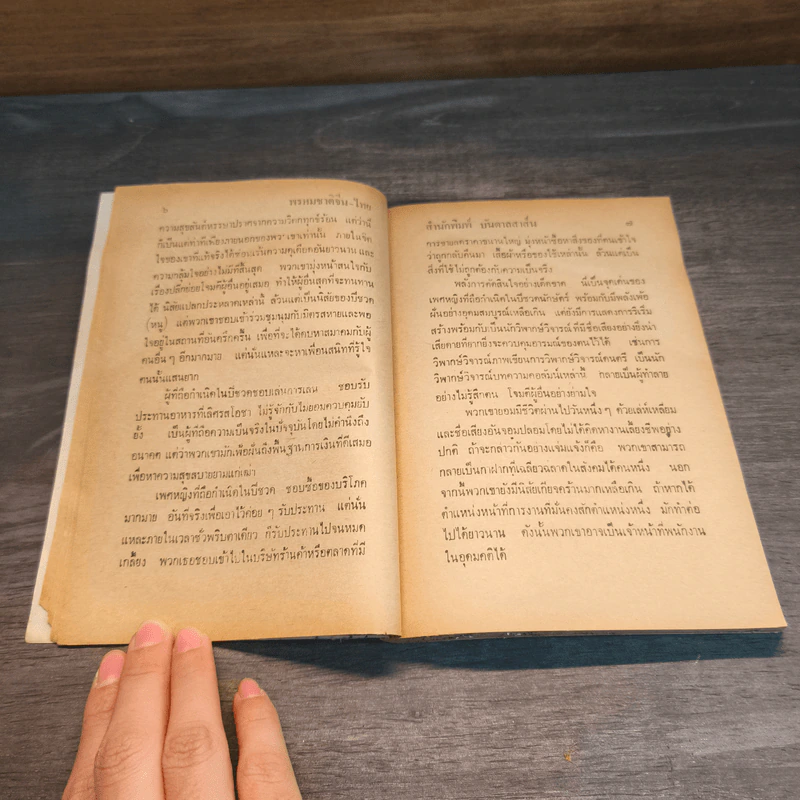 ๖ พรหมชาติจีน-ไทย
ความสุขสันต์หรรษาปราศจากความวิตกทุกข์ร้อน แต่ว่านี่
ก็เป็นแต่ท่าทีเพียงภายนอกของพวกเขาเท่านั้น ภายในจิต
ใจของเขาที่แท้จริงได้ซ่อนเร้นความคุเคียดอันยาวนาน และ
ความกลุ้มใจอย่างไม่มีที่สิ้นสุด พวกเขามุ่งหน้าสนใจกับ
เรื่องปลีกย่อยโจมตีผู้อื่นอยู่เสมอ ทำให้ผู้อื่นสุดที่จะทนทาน
ได้ นิสัยแปลกประหลาดเหล่านี้ ล้วนแต่เป็นนิสัยของปีชวด
(หนู) แต่พวกเขาชอบเข้าร่วมชุมนุมกับมิตรสหายและพอ
ใจอยู่ในสถานที่อันครึกครื้น เพื่อที่จะได้คบหาสมาคมกับผู้
คนอื่น ๆ อีกมากมาย แต่นั่นแหละจะหาเพื่อนสนิทที่รู้ใจ
คนนั้นแสนยาก
ผู้ที่ถือกำเนิดในปีชวดชอบเล่นการเล่น ชอบรับ
ประทานอาหารที่เลิศรสโอชา ไม่รู้จักกับไม่ยอมควบคุมยับ
ยั้ง เป็นผู้ที่ถือความเป็นจริงในปัจจุบันโดยไม่คำนึงถึง
อนาคต แต่ว่าพวกเขามักเพ้อฝันถึงพื้นฐานการเงินที่ดีเสมอ
เพื่อหาความสุขสบายยามแก่เฒ่า
เพศหญิงที่ถือกำเนิดในปีชวด ชอบซื้อของบริโภค
มากมาย อันที่จริงเพื่อเอาไว้ค่อย ๆ รับประทาน แต่นั่น
แหละภายในเวลาชั่วพริบตาเดียว ก็รับประทานไปจนหมด
เกลี้ยง พวกเธอชอบเข้าไปในบริษัทร้านค้าหรือตลาดที่มี
สำนักพิมพ์ บันดาลสาส์น ๗
การขายลดราคาขนานใหญ่ มุ่งหน้าซื้อหาสิ่งของที่ตนเข้าใจ
ว่าถูกกลับคืนมา เสื้อผ้าหรือของใช้เหล่านั้น ล้วนแต่เป็น
สิ่งที่ใช้ไม่ถูกต้องกับความเป็นจริง
พลังการตัดสินใจอย่างเด็ดขาด นี่เป็นจุดเด่นของ
เพศหญิงที่ถือกำเนิดในปีชวดนักษัตร์ พร้อมกับมีพลังเพ้อ
ฝันอย่างอุดมสมบูรณ์เหลือเกิน แต่ยังมีการแสดงการริเริ่ม
สร้างพร้อมกับเป็นนักวิพากษ์วิจารณ์ที่มีชื่อเสียงอย่างยิ่งน่า
เสียดายที่ยากยิ่งจะควบคุมอารมณ์ของตนไว้ได้ เช่นการ
วิพากษ์วิจารณ์ภาพเขียนการวิพากษ์วิจารณ์ดนตรี เป็นนัก
วิพากษ์วิจารณ์บทความคอลัมน์เหล่านี้ กลายเป็นผู้ทำลาย
อย่างไม่รู้สึกตน โจมตีผู้อื่นอย่างย่ามใจ
พวกเขายอมมีชีวิตผ่านไปวันหนึ่ง ๆ ด้วยเล่ห์เหลี่ยม
และชื่อเสียงอันจอมปลอมโดยไม่ได้คิดหางานเลี้ยงชีพอย่าง
ปกติ ถ้าจะกล่าวกันอย่างแจ่มแจ้งก็คือ พวกเขาสามารถ
กลายเป็นกาฝากที่เฉลียวฉลาดในสังคมได้คนหนึ่ง นอก
จากนี้พวกเขายังมีนิสัยเกียจคร้านมากเหลือเกิน ถ้าหากได้
ตำแหน่งหน้าที่การงานที่มั่นคงสักตำแหน่งหนึ่ง มักทำต่อ
ไปได้ยาวนาน ดังนั้นพวกเขาอาจเป็นเจ้าหน้าที่พนักงาน
ในอุดมคติได้